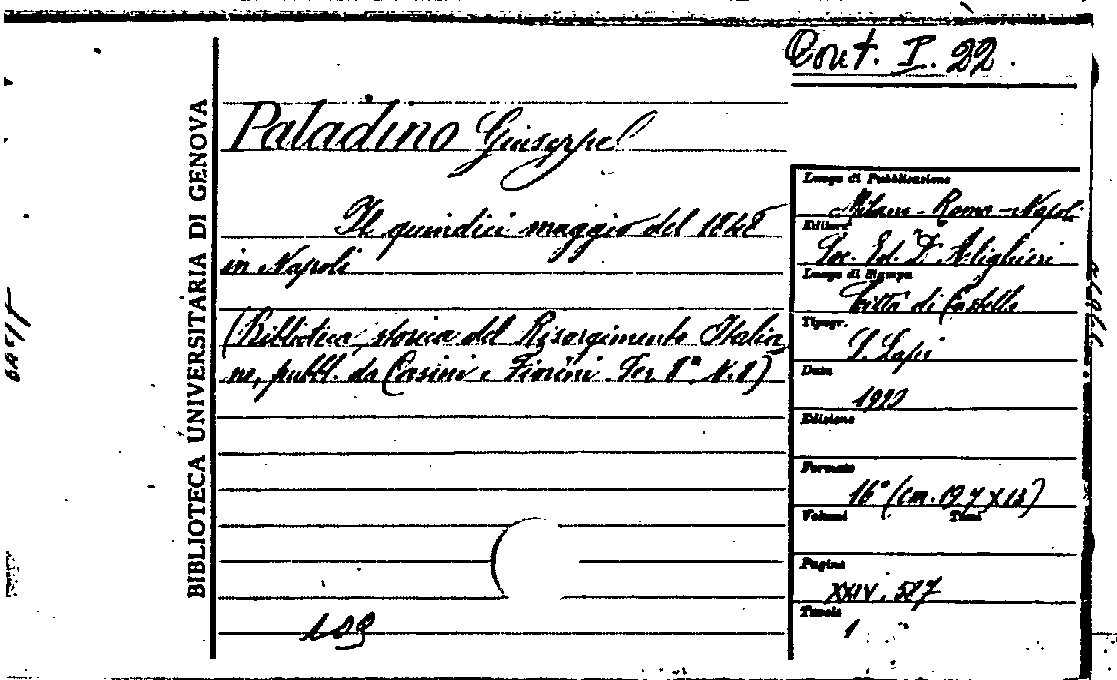 Cont. I. 22.
BIBLIOTECA UNIVERSITARIA DI GENOVA
Paladino Giuseppe
Il quindici maggio del 1848
in Napoli
(Biblioteca storica del Risorgimento Italia
no, pubbl. da Casini e Fiorini. Ser 8ª. N. 8)
109
Luogo di Pubblicazione
Milano - Roma - Napoli
Editore
Soc. Ed. D. Alighieri
Luogo di Stampa
Città di Castello
Tipogr.
S. Lapi
Data
1920
Edizione
Formato
16° (cm. 19,7 X 13)
Volumi Tomi
Pagine
XXIV. 527
Tavole
1